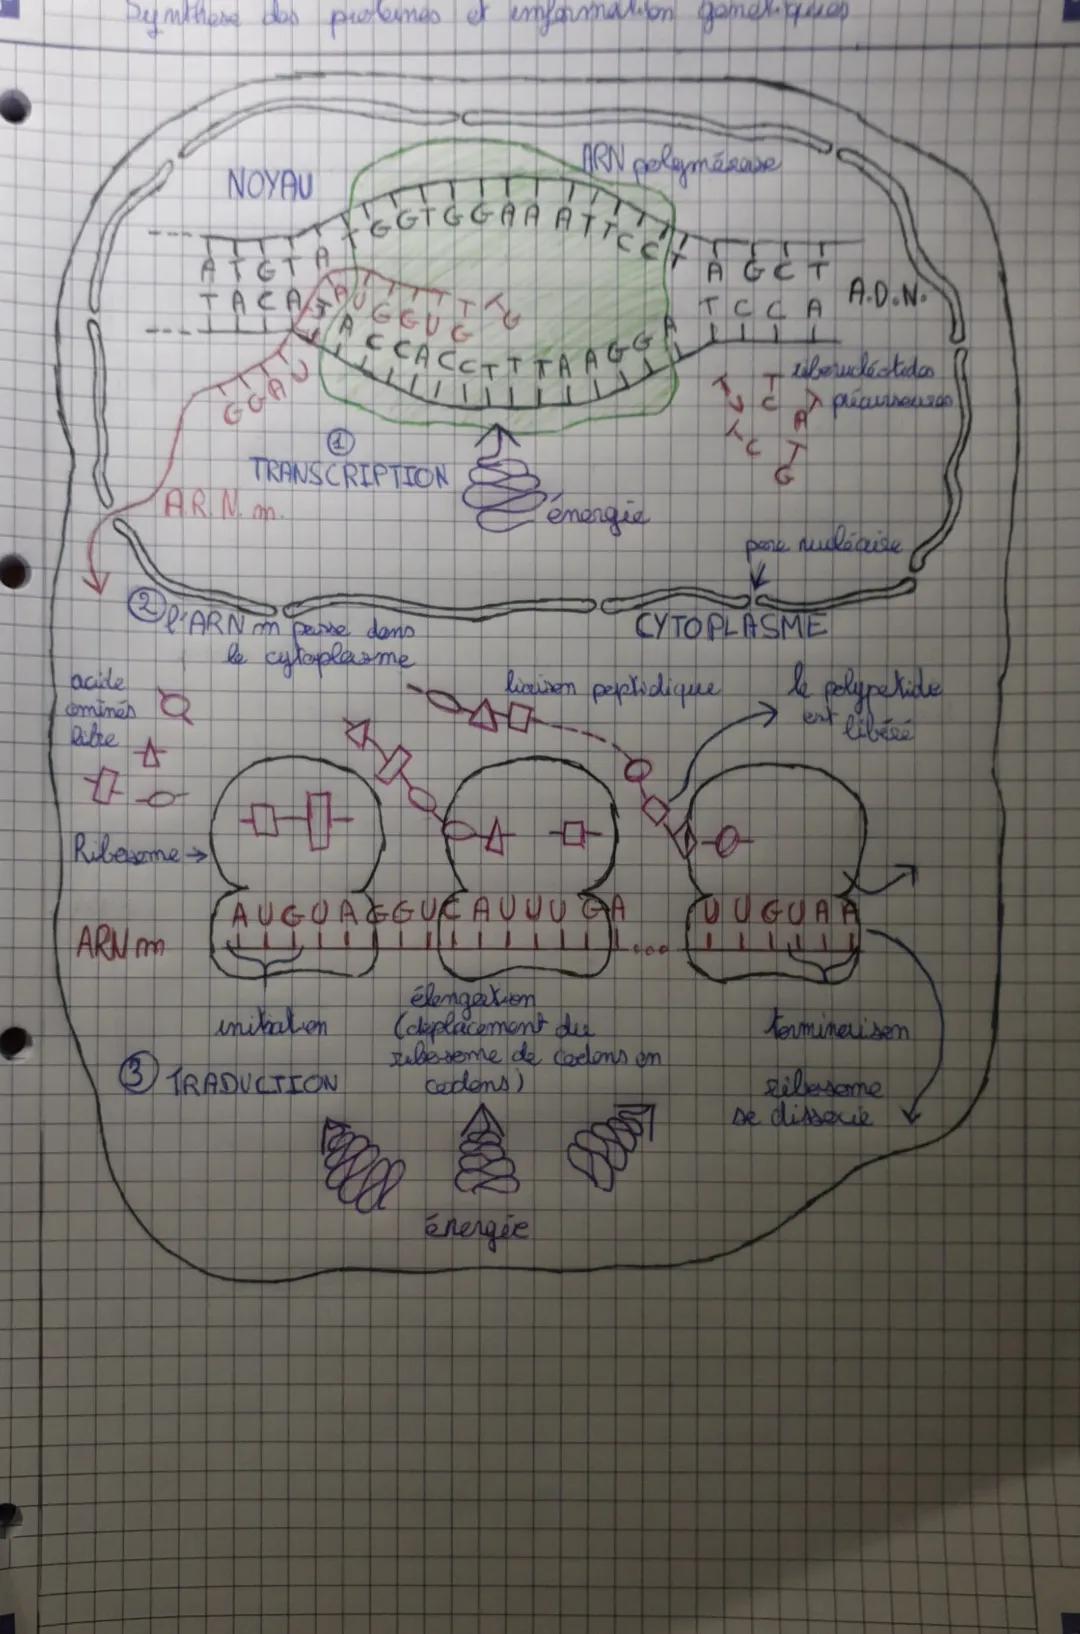 Synthèse des protéines et information génétiques
NOYAU
ARN polymérase
G G T G G A A A T T C C
A T G T A
A G C T
T A C A T
T C C A
A.D.N.
A U G G U G
A C C A C C T T T A A G G A
G G A U
ribonucléotides
précurseurs
T U C
T C A T G
①
TRANSCRIPTION
A.R.N.m.
énergie
pore nucléaire
② l'ARNm passe dans
le cytoplasme
CYTOPLASME
acide
aminés
libre
liaison peptidique
le polypetide
est
libéré
Ribosome
A U G U A G G U C A U U U G A
...
U U G U A A
ARNm
initiation
élongation
(déplacement du
ribosome de codons en
codons)
terminaison
③ TRADUCTION
ribosome
se dissocie
énergie